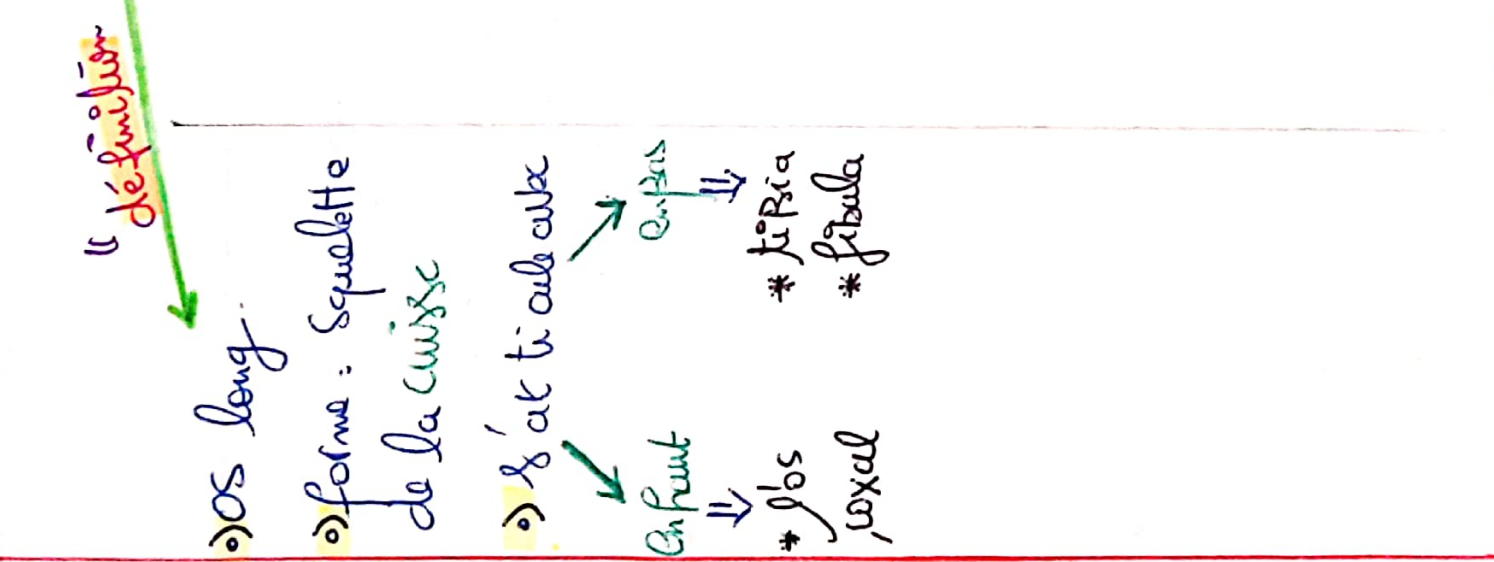 " définition
°) os long.
°) forme : Squelette
de la cuisse
°) s'at ti cule avx
En haut
En bas
⇓ ⇓
* l'os
coxal
* tibia
* fibula